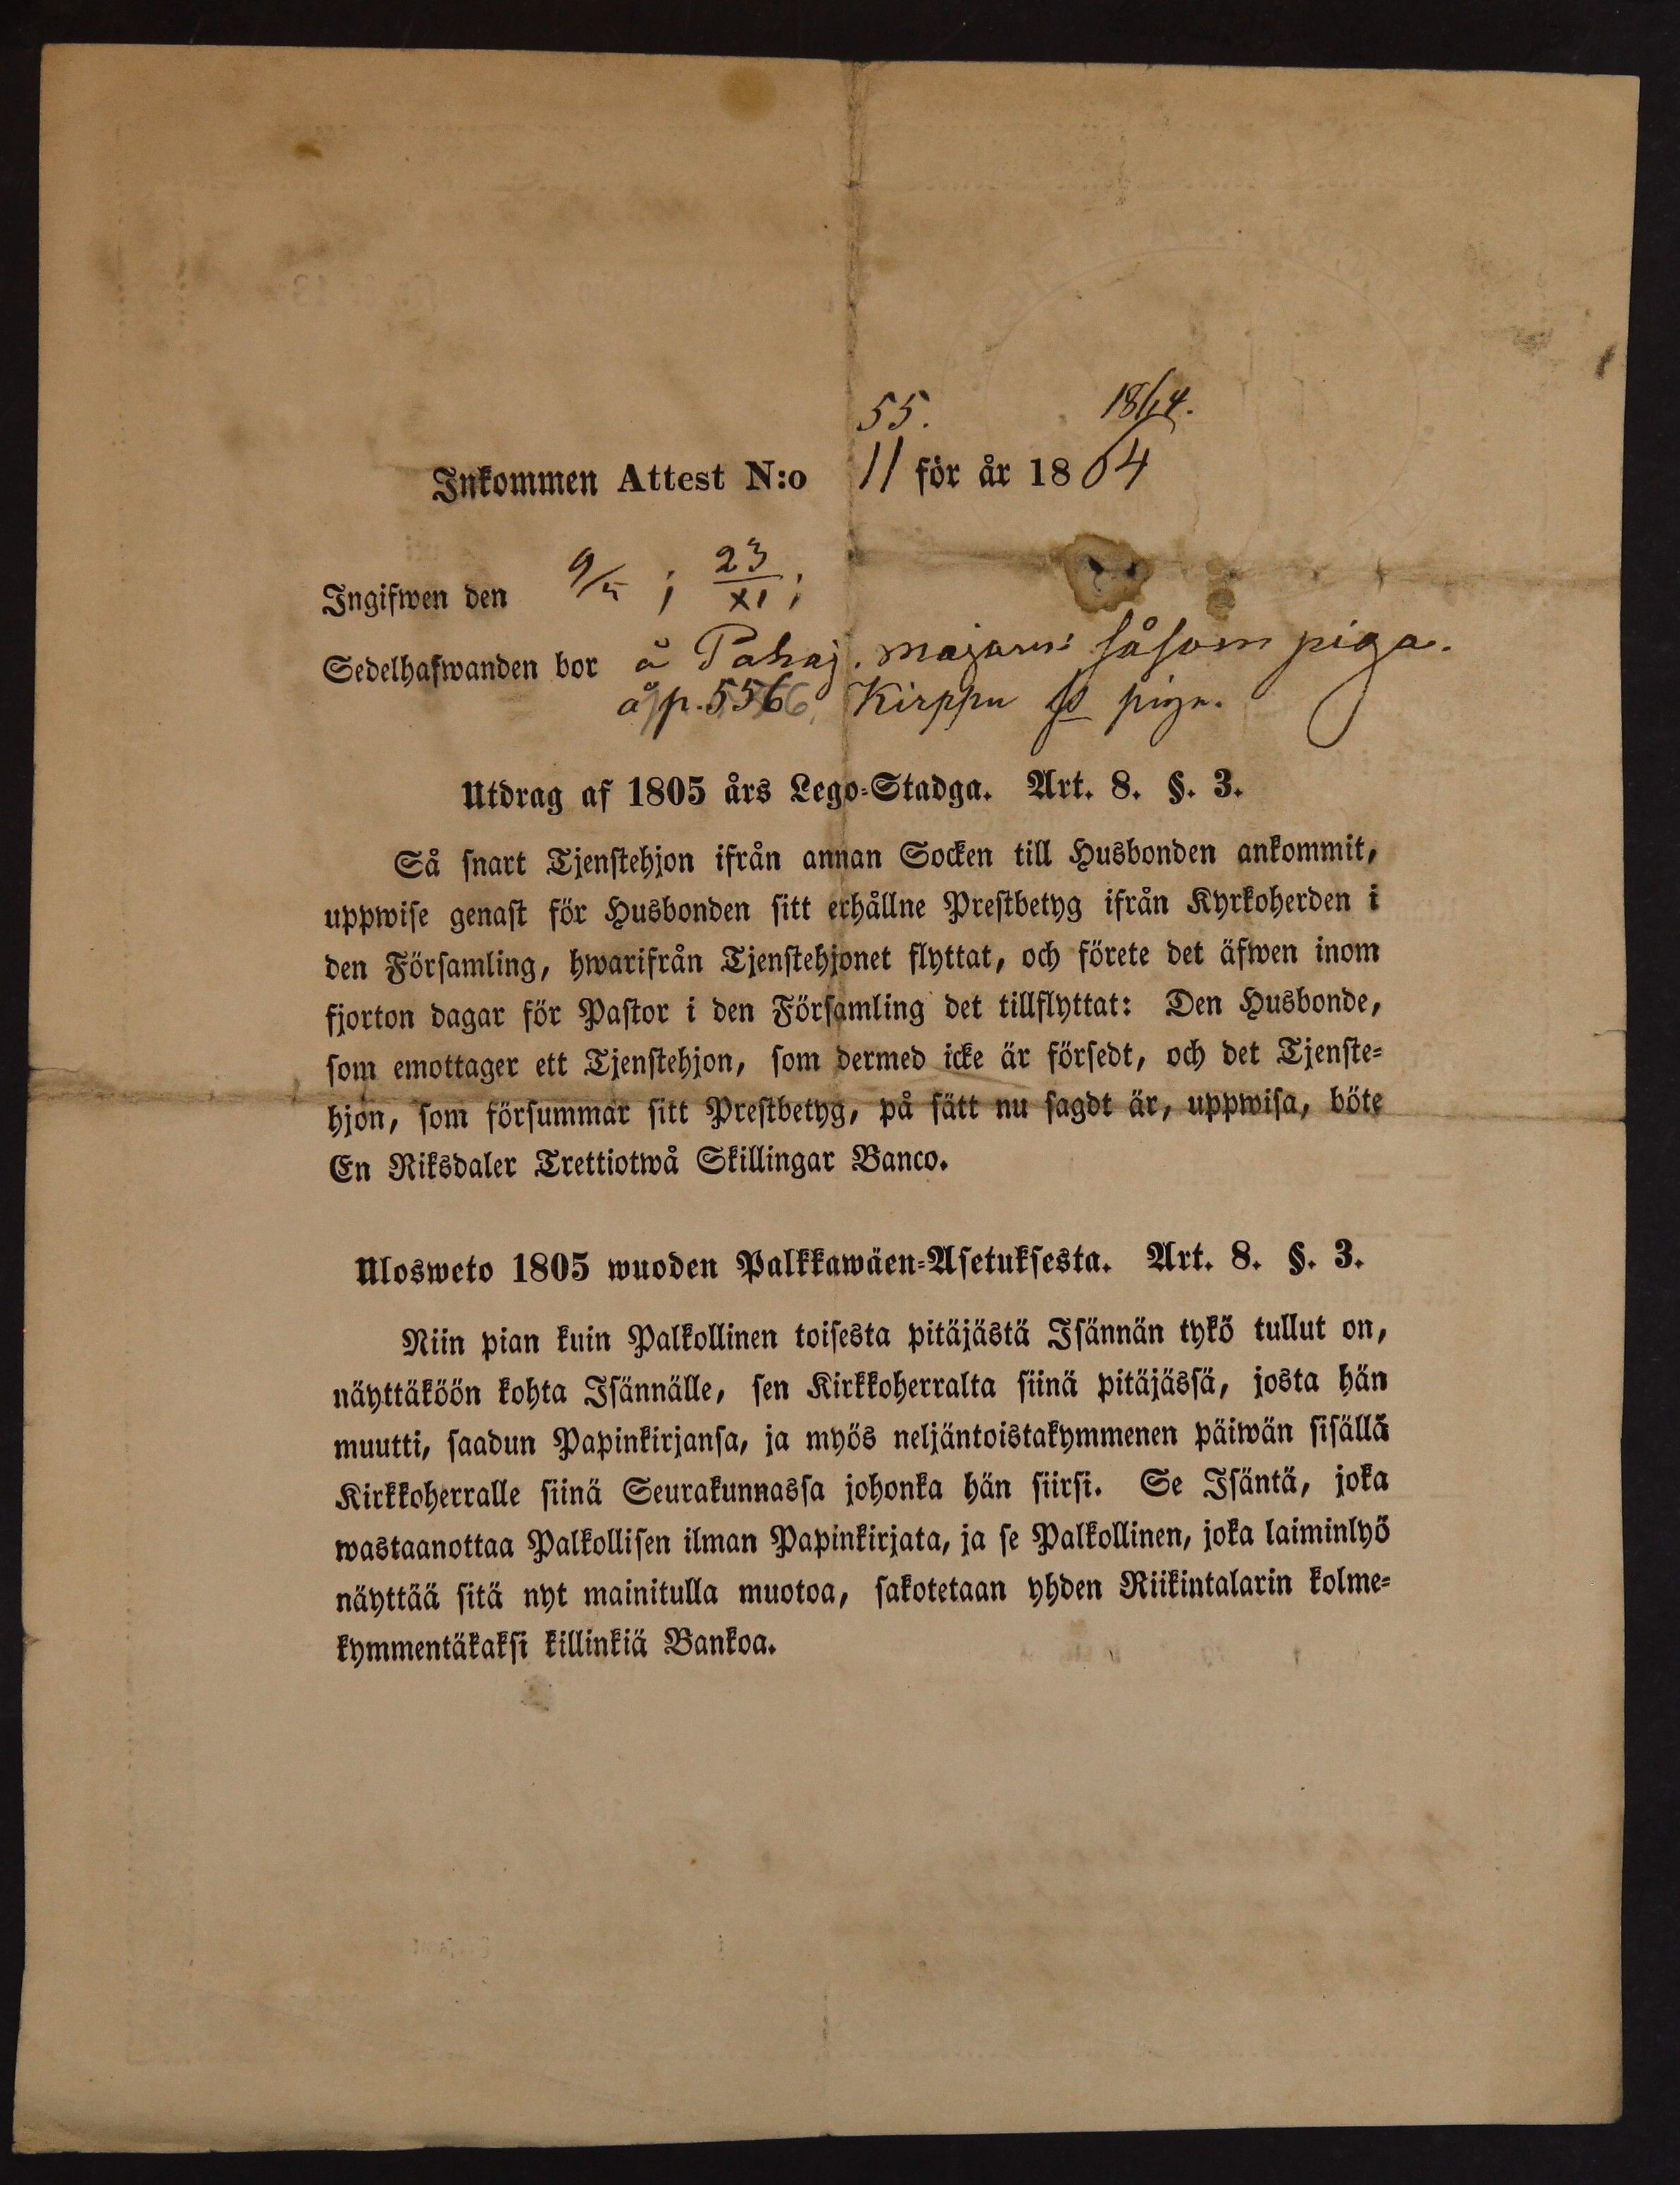 55. 18/64.
Inkommen Attest N:o 11 för år 1864
Ingifwen den 9/5 ; 23/XI ;
Sedelhafwanden bor å Pahaj. såsom piga.
å p. 556 Kirppu ss piga.
Utdrag af 1805 års Lego-Stadga. Art. 8. §. 3.
Så snart Tjenstehjon ifrån annan Socken till Husbonden ankommit,
uppwise genast för Husbonden sitt erhållne Prestbetyg ifrån Kyrkoherden i
den Församling, hwarifrån Tjenstehjonet flyttat, och förete det äfwen inom
fjorton dagar för Pastor i den Församling det tillflyttat: Den Husbonde,
som emottager ett Tjenstehjon, som dermed icke är försedt, och det Tjenste-
hjon, som försummar sitt Prestbetyg, på sätt nu sagdt är, uppwisa, böte
En Riksdaler Trettiotwå Skillingar Banco.
Ulosweto 1805 wuoden Palkkawäen-Asetuksesta. Art. 8. §. 3.
Niin pian kuin Palkollinen toisesta pitäjästä Isännän tykö tullut on,
näyttäköön kohta Isännälle, sen Kirkkoherralta siinä pitäjässä, josta hän
muutti, saadun Papinkirjansa, ja myös neljäntoistakymmenen päiwän sisällä
Kirkkoherralle siinä Seurakunnassa johonka hän siirsi. Se Isäntä, joka
wastaanottaa Palkollisen ilman Papinkirjata, ja se Palkollinen, joka laiminlyö
näyttää sitä nyt mainitulla muotoa, sakotetaan yhden Riikintalarin kolme-
kymmentäkaksi killinkiä Bankoa.